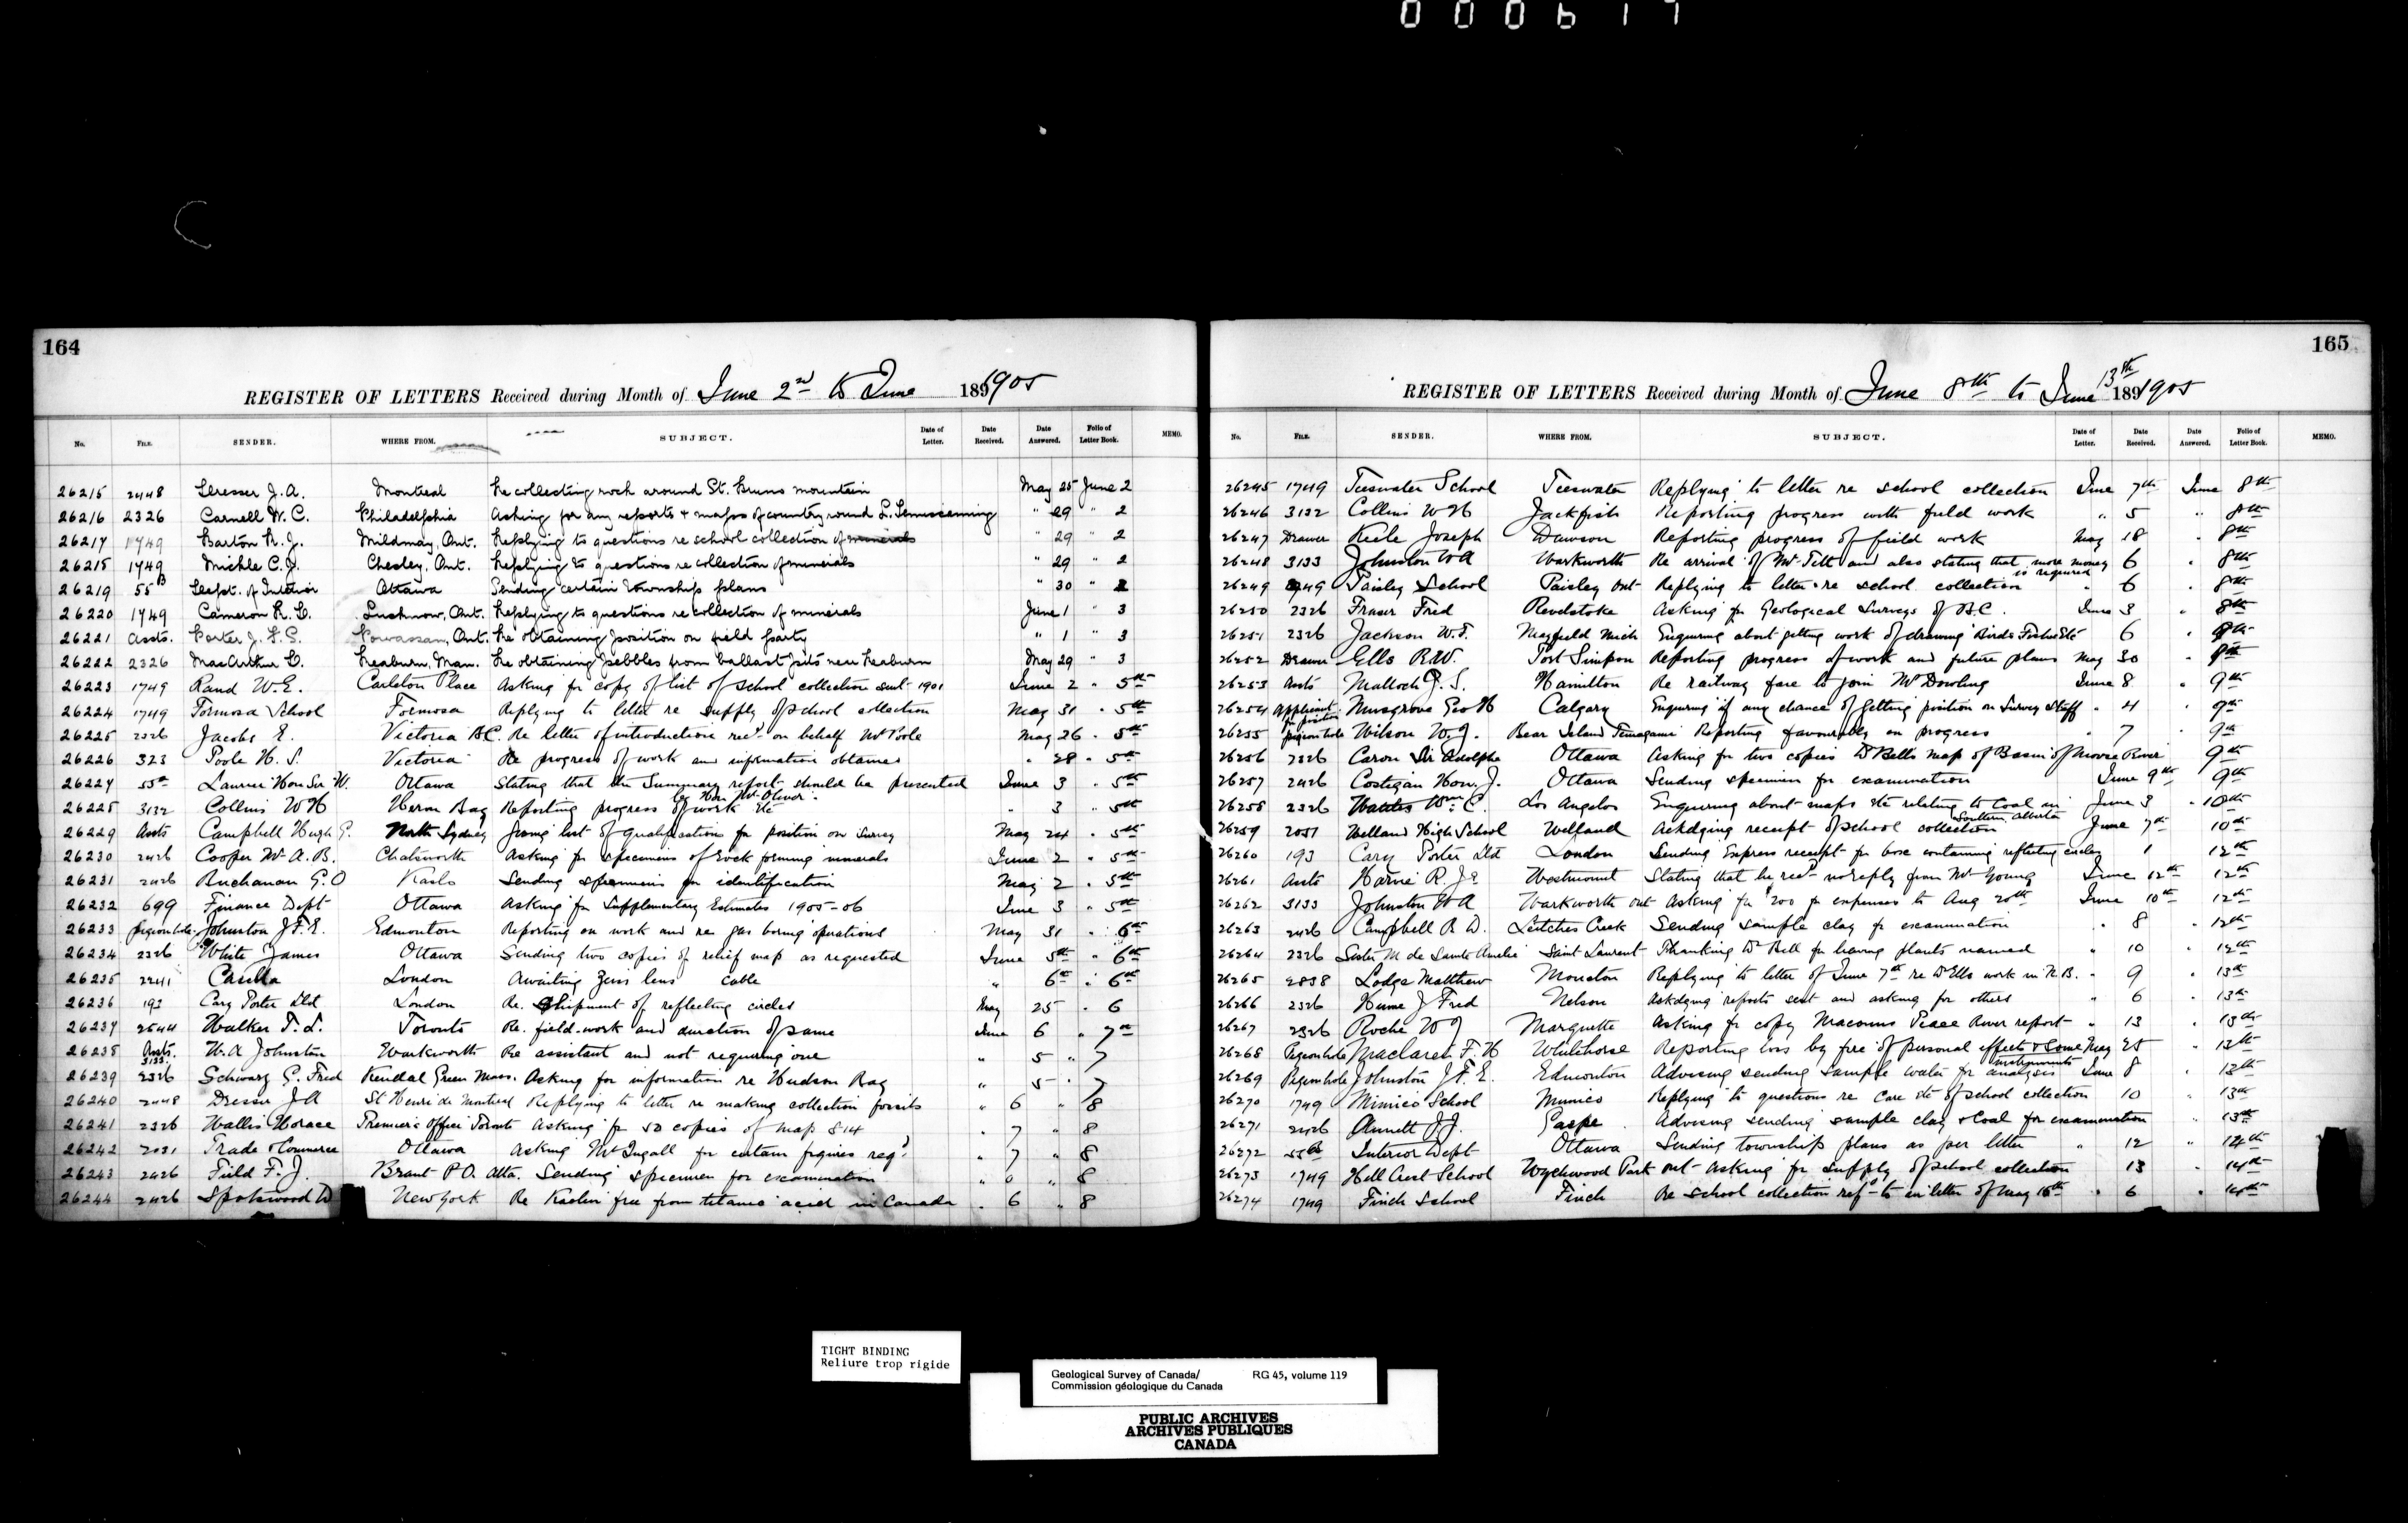 000617
164
REGISTER OF LETTERS Received during Month of June 2nd to June 1905
No. FILE. SENDER. WHERE FROM. SUBJECT. Date of Letter. Date Received. Date Answered. Folio of Letter Book. MEMO.
26215 2448 Dresser J.A. Montreal Re collecting rock around St. Bruno mountain May 25 June 2
26216 2326 Carnell W.C. Philadelphia Asking for any reports & maps of country round L. Temiscaming " 29 " 2
26217 1749 Barton R.J. Mildmay, Ont. Replying to questions re school collection of minerals " 29 " 2
26218 1749 Michle C.J. Chesley, Ont. Replying to questions re collection of minerals " 29 " 2
26219 55B Dept. of Interior Ottawa Sending certain township plans " 30 " 2
26220 1749 Cameron R.D. Lucknow, Ont. Replying to questions re collection of minerals June 1 " 3
26221 Assts. Porter J. Ont. Re obtaining position on field party " 1 " 3
26222 2326 MacArthur D. Reaburn, Man. Re obtaining pebbles from ballast pits near Reaburn May 29 " 3
26223 1749 Rand W.E. Carleton Place Asking for copy of list of school collection sent 1901 June 2 " 5th
26224 1749 Formosa School Formosa Replying to letter re supply of school collection May 31 " 5th
26225 2326 Jacobs E. Victoria B.C. Re letter of introduction recd on behalf Mr Poole May 26 " 5th
26226 323 Poole H.S. Victoria Re progress of work and information obtained " 28 " 5th
26227 55a Laurier Hon Sir W. Ottawa Stating that the Summary report should be presented June 3 " 5th
by Hon Mr Oliver
26228 3132 Collins W H Heron Bay Reporting progress of work etc " 3 " 5th
26229 Assts Campbell Hugh G. North Sydney Giving list of qualifications for position on Survey May 24 " 5th
26230 2426 Cooper W. A. B. Chatsworth Asking for specimens of rock forming minerals June 2 " 5th
26231 2426 Buchanan G.O Kaslo Sending specimens for identification May 2 " 5th
26232 699 Finance Dept Ottawa Asking for Supplementary Estimates 1905-06 June 3 " 5th
26233 pigeon hole Johnston J.F.E. Edmonton Reporting on work and re gas boring operations May 31 " 6th
26234 2326 White James Ottawa Sending two copies of relief map as requested June 5th " 6th
26235 2241 Casella London Awaiting Zeiss lens cable " 6th " 6th
26236 193 Cary Porter Ltd London Re. Shipment of reflecting circles May 25 " 6
26237 2544 Walker T.L. Toronto Re. field-work and duration of same June 6 " 7th
26238 Assts. 3133 W.A Johnston Warkworth Re assistant and not requiring one " 5 " 7
26239 2326 Schwarz G. Fred Kendal Green Mass. Asking for information re Hudson Bay " 5 " 7
26240 2448 Dresser J A St Henri de Montreal Replying to letter re making collection fossils " 6 " 8
26241 2326 Wallis Horace Premier's Office Toronto Asking for 50 copies of map 814 " 7 " 8
26242 2031 Trade & Commerce Ottawa Asking Mr Ingall for certain figures reqd " 7 " 8
26243 2426 Field F.J. Brant P.O. Alta. Sending specimen for examination " 8
26244 2426 Spotswood D New York Re Kaolin free from titanic acid in Canada " 6 " 8
165
REGISTER OF LETTERS Received during Month of June 8th to June 13th 1905
No. FILE. SENDER. WHERE FROM. SUBJECT. Date of Letter. Date Received. Date Answered. Folio of Letter Book. MEMO.
26245 1749 Teeswater School Teeswater Replying to letter re school collection June 7th June 8th
26246 3132 Collins W H Jackfish Reporting progress with field work " 5 " 8th
26247 Drawer Keele Joseph Dawson Reporting progress of field work May 18 " 8th
26248 3133 Johnston W A Warkworth Re arrival of Mr Tett and also stating that more money 6 " 8th
is required
26249 1749 Paisley School Paisley Ont Replying to letter re school collection " 6 " 8th
26250 2326 Fraser Fred Revelstoke Asking for Geological Surveys of B.C. June 3 " 8th
26251 2326 Jackson W.F. Mayfield Mich Enquiring about getting work of drawing Birds Fishes Etc 6 " 8th
26252 Drawer Ells R.W. Port Simpson Reporting progress of work and future plans May 30 " 8th
26253 Assts Malloch G.S. Hamilton Re railway fare to join Mr Dowling June 8 " 9th
26254 Applicant for position Musgrove Geo H Calgary Enquiring if any chance of getting position on Survey Staff " 4 " 9th
26255 pigeon hole Wilson W.J. Bear Island Temagami Reporting favourably on progress " 7 " 9th
26256 2326 Caron Sir Adolphe Ottawa Asking for two copies Dr Bells map of Basin of Moose River 9th
26257 2426 Costigan Hon. J. Ottawa Sending specimen for examination June 9th 9th
26258 2326 Wm. C. Los Angelos Enquiring about maps etc relating to Coal in June 3 " 10th
Southern Alberta
26259 2051 Welland High School Welland Ackdging receipt of school collection June 7th 10th
26260 193 Cary Porter Ltd London Sending Express receipt for box containing reflecting circles 1 12th
26261 Assts Harvie R. Jr Westmount Stating that he recd no reply from Mr Young June 12th 12th
26262 3133 Johnston W A Warkworth Ont Asking for $200 for expenses to Aug 20th June 10th 12th
26263 2426 Campbell R D. Leitches Creek Sending sample clay for examination " 8 " 12th
26264 2326 Sister M de Sainte Amelie Saint Laurent Thanking Dr Bell for having plants named " 10 " 12th
26265 2838 Lodge Matthew Moncton Replying to letter of June 7th re Dr Ells work in N.B. " 9 " 13th
26266 2326 Hume J Fred Nelson Ackdging reports sent and asking for others " 6 " 13th
26267 2326 Roche W J Marquette Asking for copy Macouns Peace River report " 13 " 13th
26268 Pigeon hole Maclaren F.H Whitehorse Reporting loss by fire of personal effects & some May 25 " 13th
instruments
26269 Pigeon hole Johnston J.F.E. Edmonton Advising sending sample water for analysis June 8 " 13th
26270 1749 Mimico School Mimico Replying to questions re care etc of school collection 10 " 13th
26271 2426 Annett J.J. Gaspe Advising sending sample clay & coal for examination 13th
26272 55B Interior Dept Ottawa Sending township plans as per letter " 12 " 14th
26273 1749 Hill Crest School Wychwood Park Ont Asking for supply of school collection 13 " 14th
26274 1749 Finch School Finch Re school collection refd to in letter of May 16th " 6 " 14th
TIGHT BINDING
Reliure trop rigide
Geological Survey of Canada/ RG 45, volume 119
Commission géologique du Canada
PUBLIC ARCHIVES
ARCHIVES PUBLIQUES
CANADA